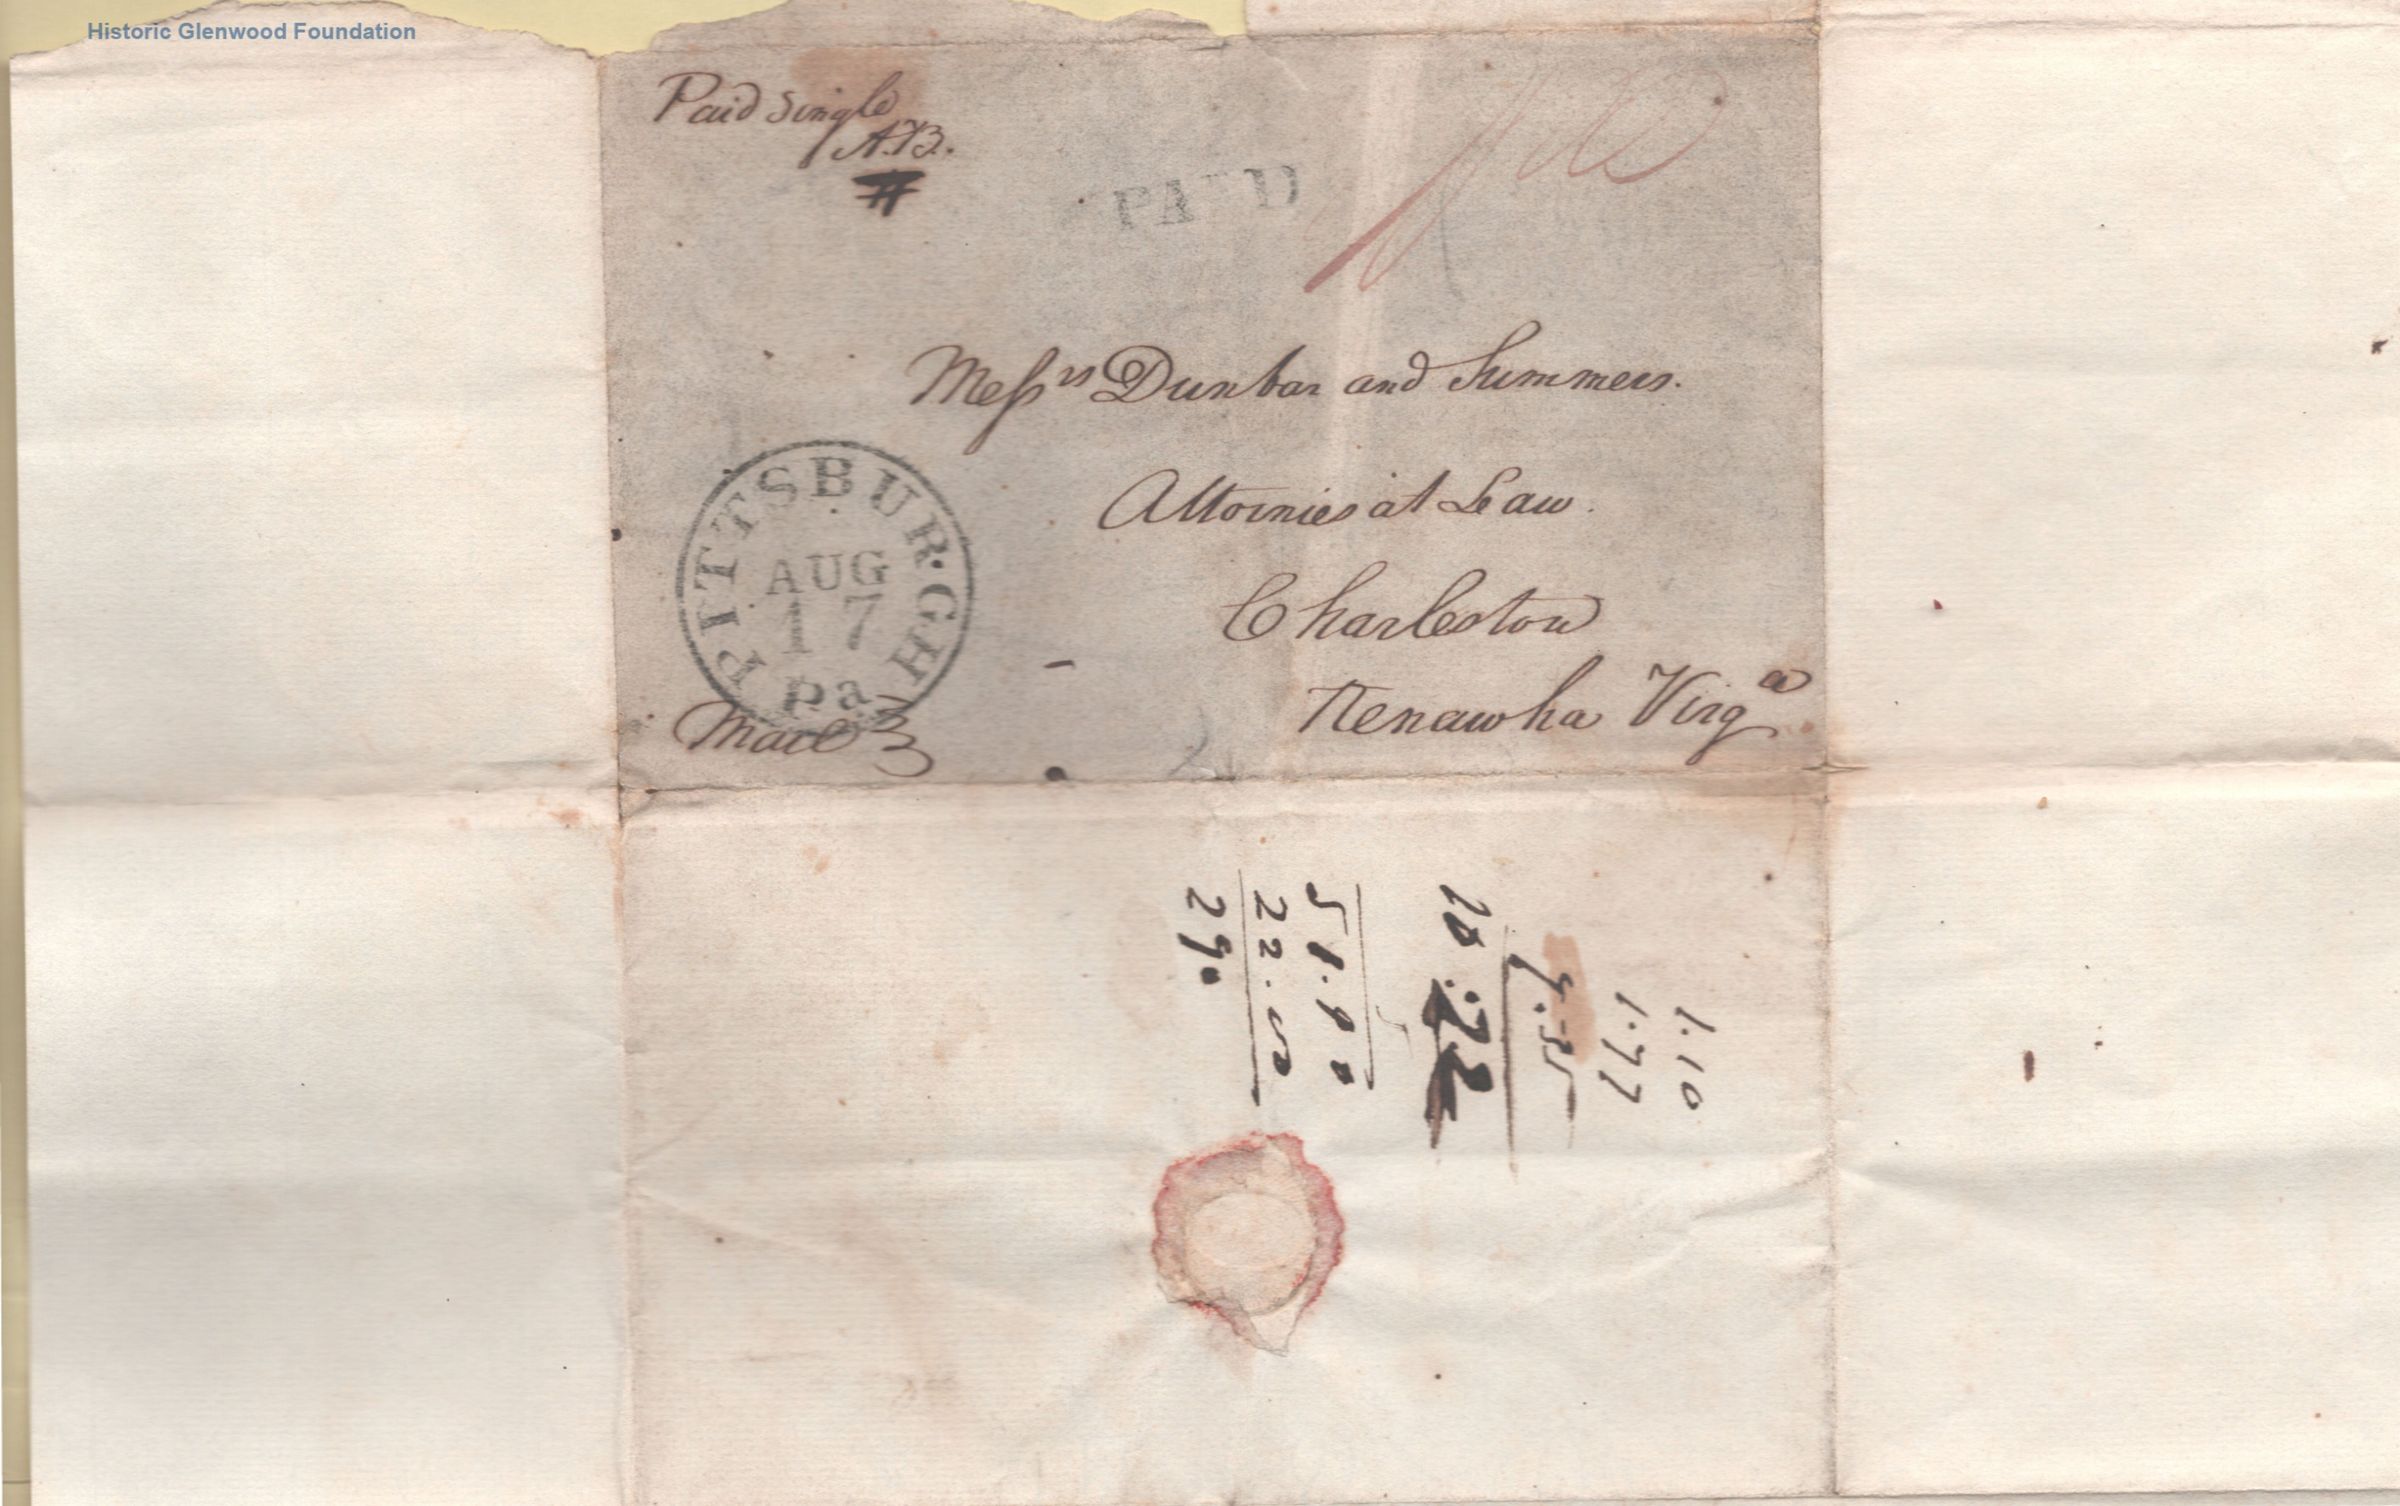 Historic Glenwood Foundation
Paid Single
A.B.
PAID
Messrs Dunbar and Summers.
Attornies at Law.
Charleston
Kenawha Virga
PITTSBURGH
AUG
17
Pa
Mail
1.10
1.77
51.90
22.50
290